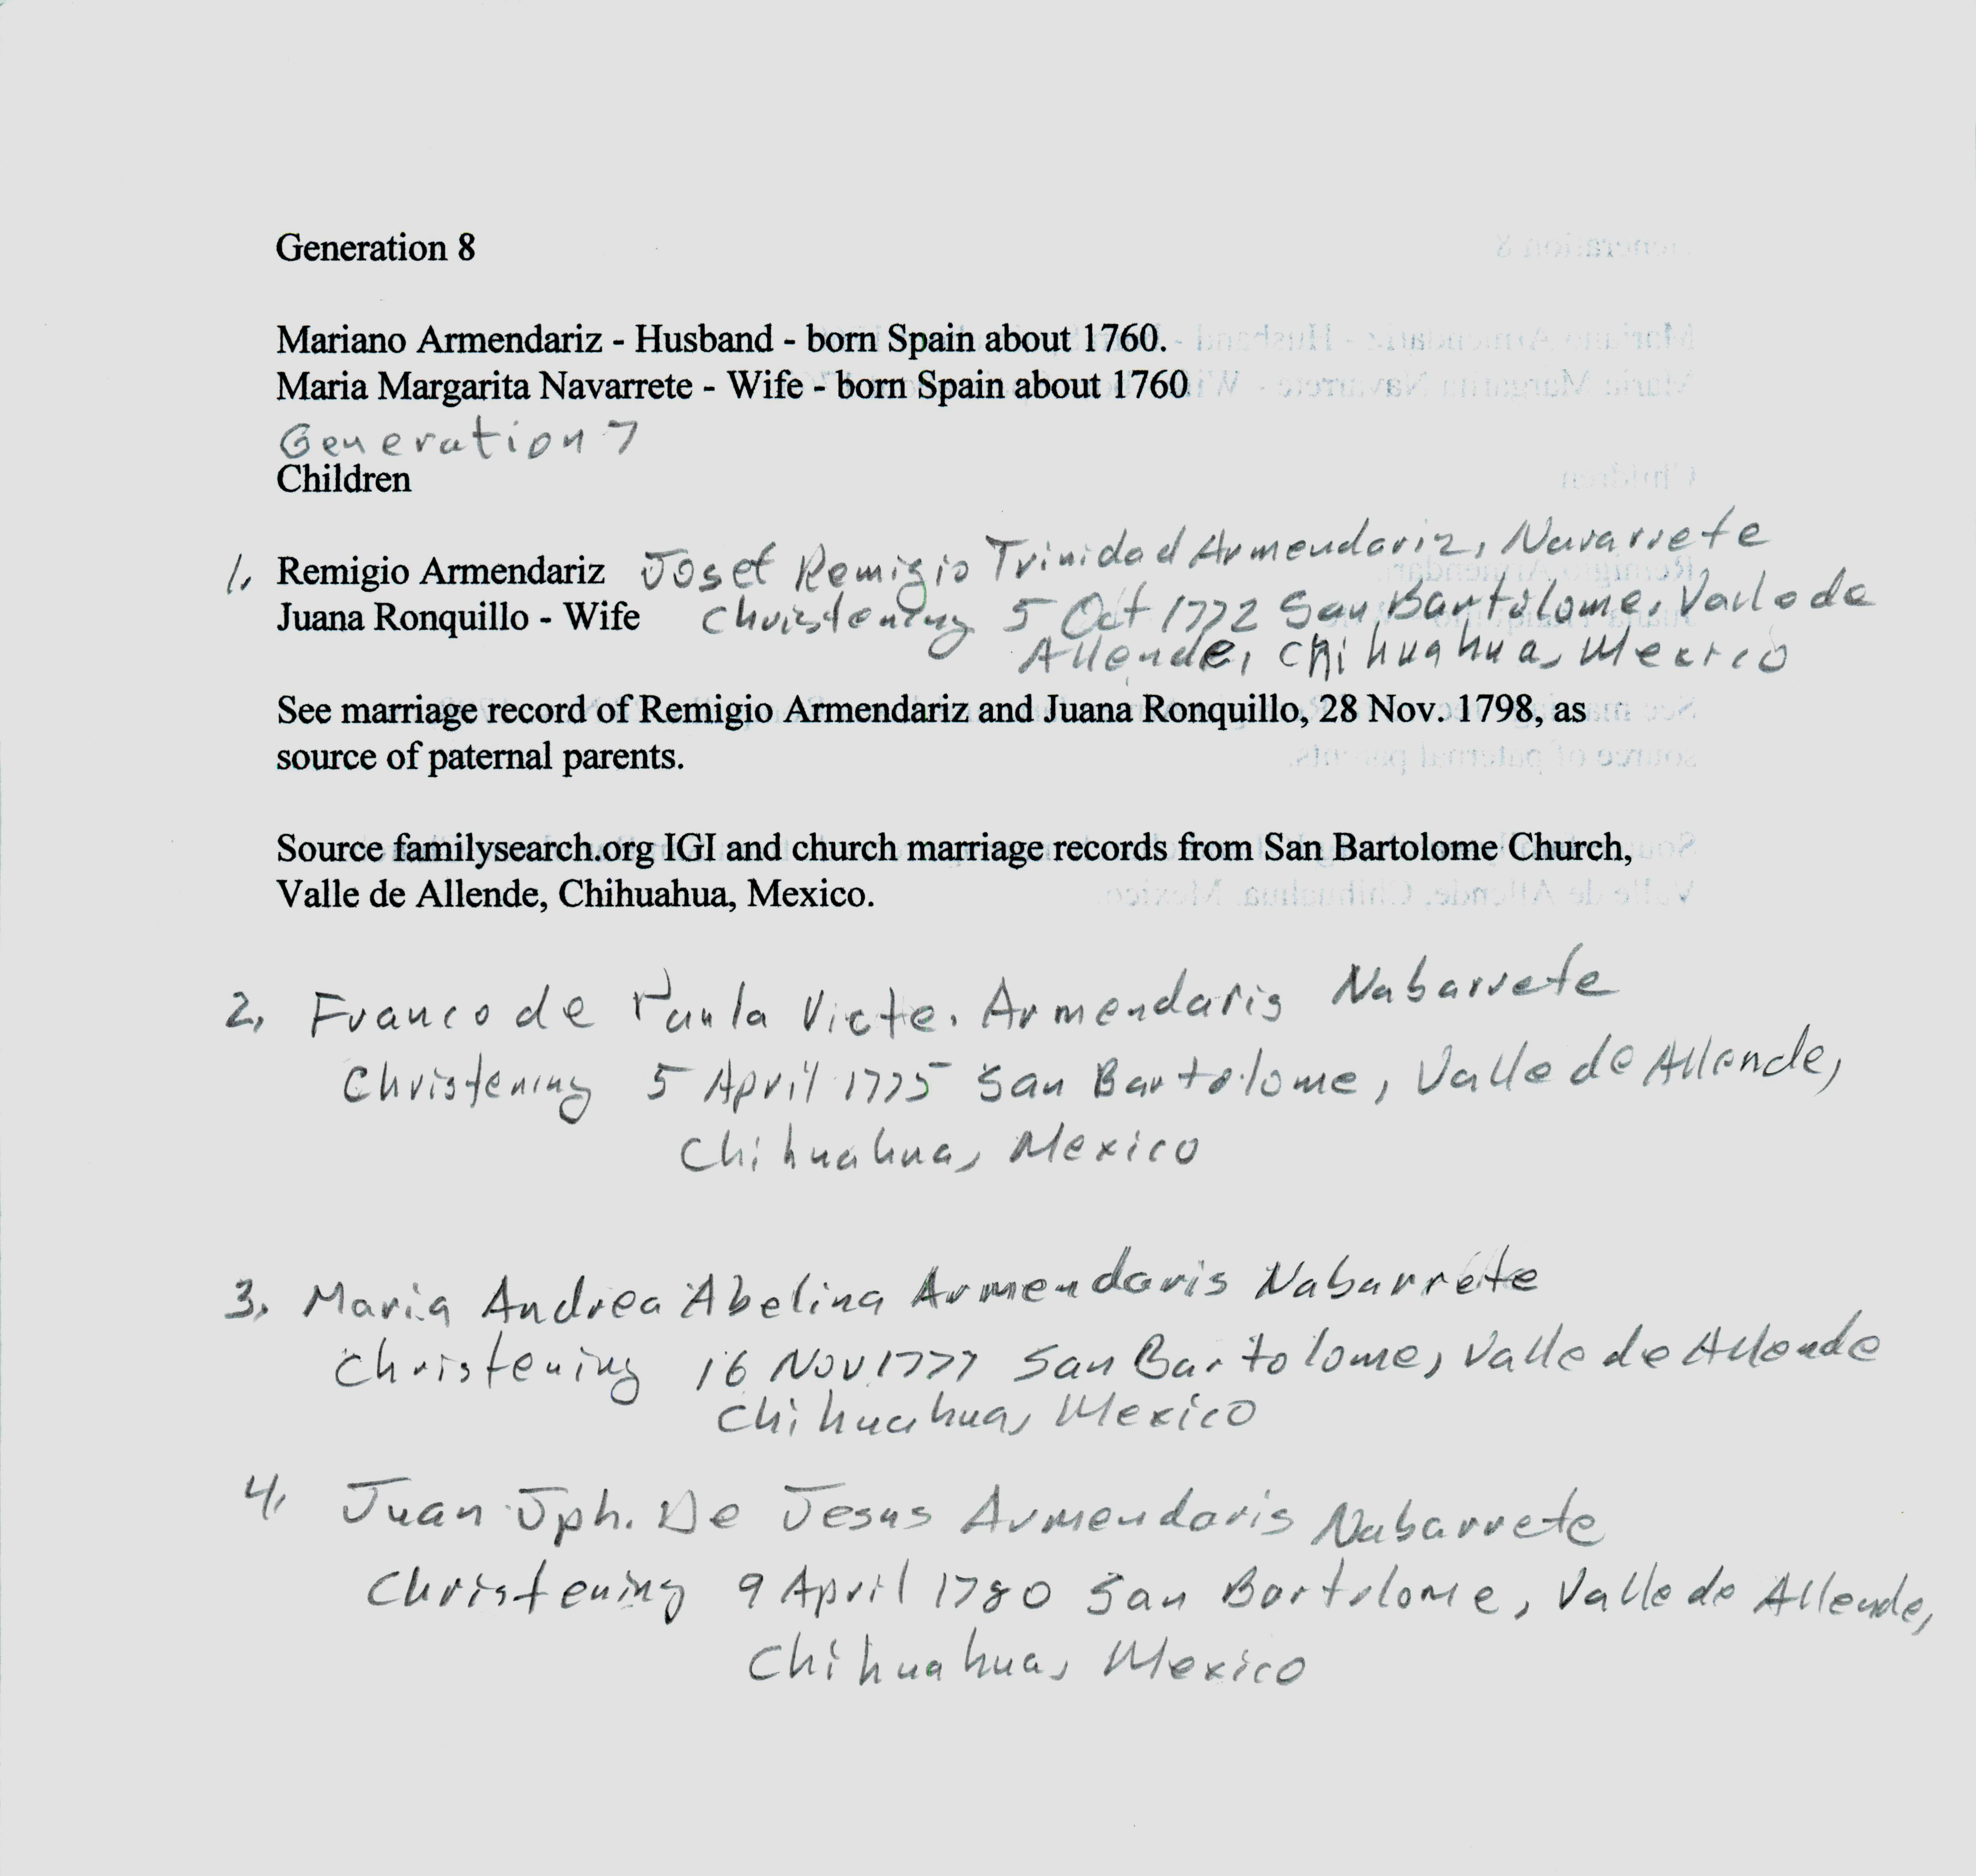 Generation 8
Mariano Armendariz - Husband - born Spain about 1760.
Maria Margarita Navarrete - Wife - born Spain about 1760
Generation 7
Children
1. Remigio Armendariz Josef Remigio Trinidad Armendariz, Navarrete
Juana Ronquillo - Wife Christening 5 Oct 1772 San Bartolome, Valle de
Allende, Chihuahua, Mexico
See marriage record of Remigio Armendariz and Juana Ronquillo, 28 Nov. 1798, as
source of paternal parents.
Source familysearch.org IGI and church marriage records from San Bartolome Church,
Valle de Allende, Chihuahua, Mexico.
2. Franco de Paula Victe. Armendaris Nabarrete
Christening 5 April 1775 San Bartolome, Valle de Allende,
Chihuahua, Mexico
3. Maria Andrea Abelina Armendaris Nabarrete
Christening 16 Nov 1777 San Bartolome, Valle de Allende
Chihuahua, Mexico
4. Juan Jph. De Jesus Armendaris Nabarrete
Christening 9 April 1780 San Bartolome, Valle de Allende,
Chihuahua, Mexico